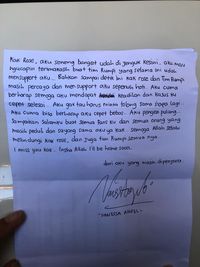 Kak Rose, aku seneng banget udah di jenguk kesini. aku mau
ngucapin terimakasih buat tim Rumpi yang selama ini udah
mensupport aku.. Bahkan sampai detik ini kak rose dan Tim Rumpi
masih percaya dan men support aku sepenuh hati. Aku cuma
berharap semoga aku mendapat keadilan dan kasus ku
cepet selesai. Aku gak tau harus minta tolong sama siapa lagi..
Aku cuma bisa berharap aku cepet bebas. Aku pengen pulang.
Sampaikan salamku buat semua fans ku dan semua orang yang
masih peduli dan sayang sama aku ya kak. Semoga Allah selalu
melindungi kak rose, dan juga tim Rumpi semua nya
I miss you kak. Insha Allah I'll be home soon.
dari aku yang masih dipenjara
- VANESSA ANGEL -